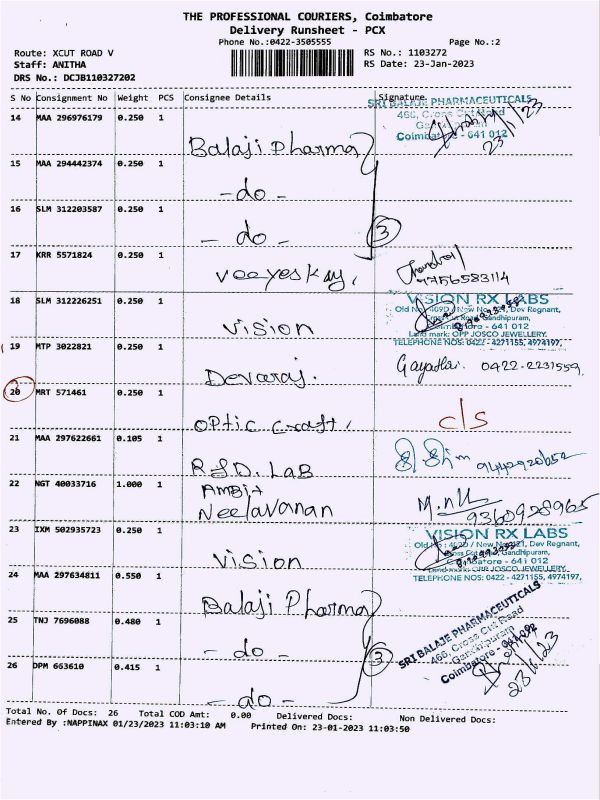 THE PROFESSIONAL COURIERS, Coimbatore
Delivery Runsheet - PCX
Phone No.:0422-3505555
Page No.:2
Route: XCUT ROAD V
RS No.: 1103272
Staff: ANITHA
RS Date: 23-Jan-2023
DRS No.: DCJB110327202
S No Consignment No Weight PCS Consignee Details Signature
SRI BALAJE PHARMACEUTICALS
14 MAA 296976179 0.250 1
460, Cross Cut Road
Coimbatore - 641 012
23/1/23
Balaji Pharma
15 MAA 294442374 0.250 1
- do -
16 SLM 312203587 0.250 1
- do -
3
17 KRR 5571824 0.250 1
veeyeskay,
9756583114
18 SLM 312226251 0.250 1
VISION RX LABS
Dev Regnant,
Gandhipuram,
641 012
Land mark: OPP JOSCO JEWELLERY,
vision
TELEPHONE NOS: 0422 - 4271155, 4974197,
19 MTP 3022821 0.250 1
Devaraj.
0422-2231559
20 MRT 571461 0.250 1
optic craft,
c/s
21 MAA 297622661 0.105 1
R&D. LAB
22 NGT 40033716 1.000 1
Ambit
Neelavanan
9360928965
23 IXM 502935723 0.250 1
VISION RX LABS
Dev Regnant,
Gandhipuram,
641 012
OPP JOSCO JEWELLERY,
vision
TELEPHONE NOS: 0422 - 4271155, 4974197,
24 MAA 297634811 0.550 1
Balaji Pharma
SRI BALAJE PHARMACEUTICALS
25 TNJ 7696088 0.480 1
460, Cross Cut Road
Gandhipuram
Coimbatore
- do -
3
26 DPM 663610 0.415 1
23/1/23
- do -
Total No. Of Docs: 26 Total COD Amt: 0.00 Delivered Docs: Non Delivered Docs:
Entered By :NAPPINAX 01/23/2023 11:03:10 AM Printed On: 23-01-2023 11:03:50